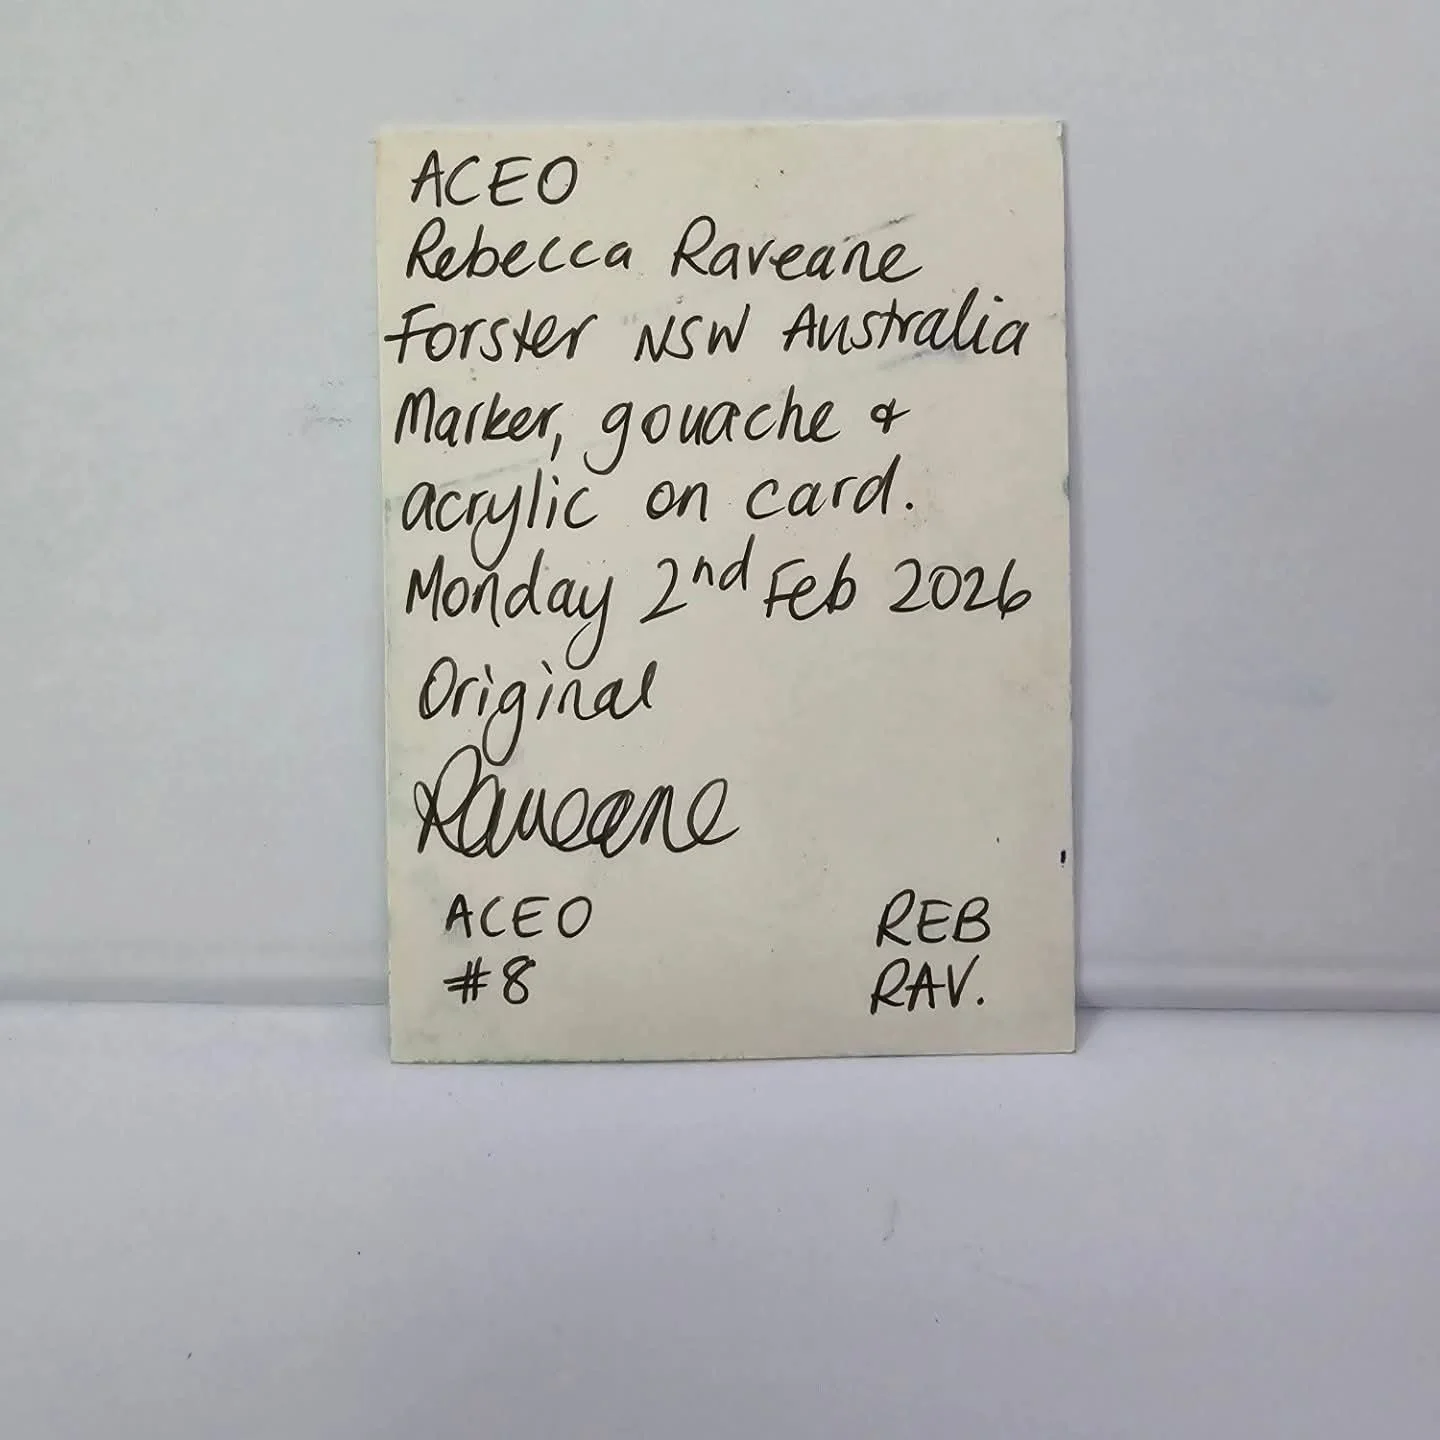 ACEO
Rebecca Raveane
Forster NSW Australia
Marker, gouache &
acrylic on card.
Monday 2nd Feb 2026
Original
Raveane
ACEO
#8
REB
RAV.